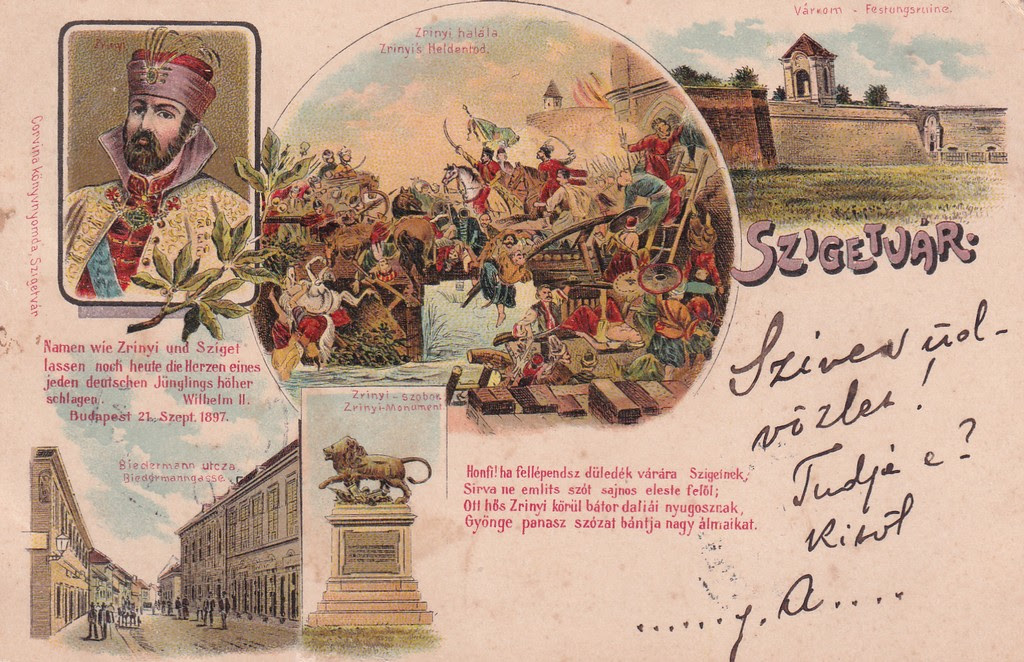 Zrinyi
Zrinyi halála
Zrinyi's Heldentod.
Várrom - Festungsruine
SZIGETVÁR.
Corvina könyvnyomda, Szigetvár
Namen wie Zrinyi und Sziget
lassen noch heute die Herzen eines
jeden deutschen Jünglings höher
schlagen. Wilhelm II.
Budapest 21. Szept. 1897.
Biedermann utcza
Biedermanngasse.
Zrinyi-Szobor
Zrinyi-Monument.
Honfi! ha fellépendsz düledék várára Szigeinek,
Sirva ne emlits szót sajnos eleste felöl;
Ott hős Zrinyi körül bátor daliái nyugosznak,
Gyönge panasz szózat bántja nagy álmaikat.
Szives üd-
vözlet!
Tudja e?
Kitöl
......y. A....